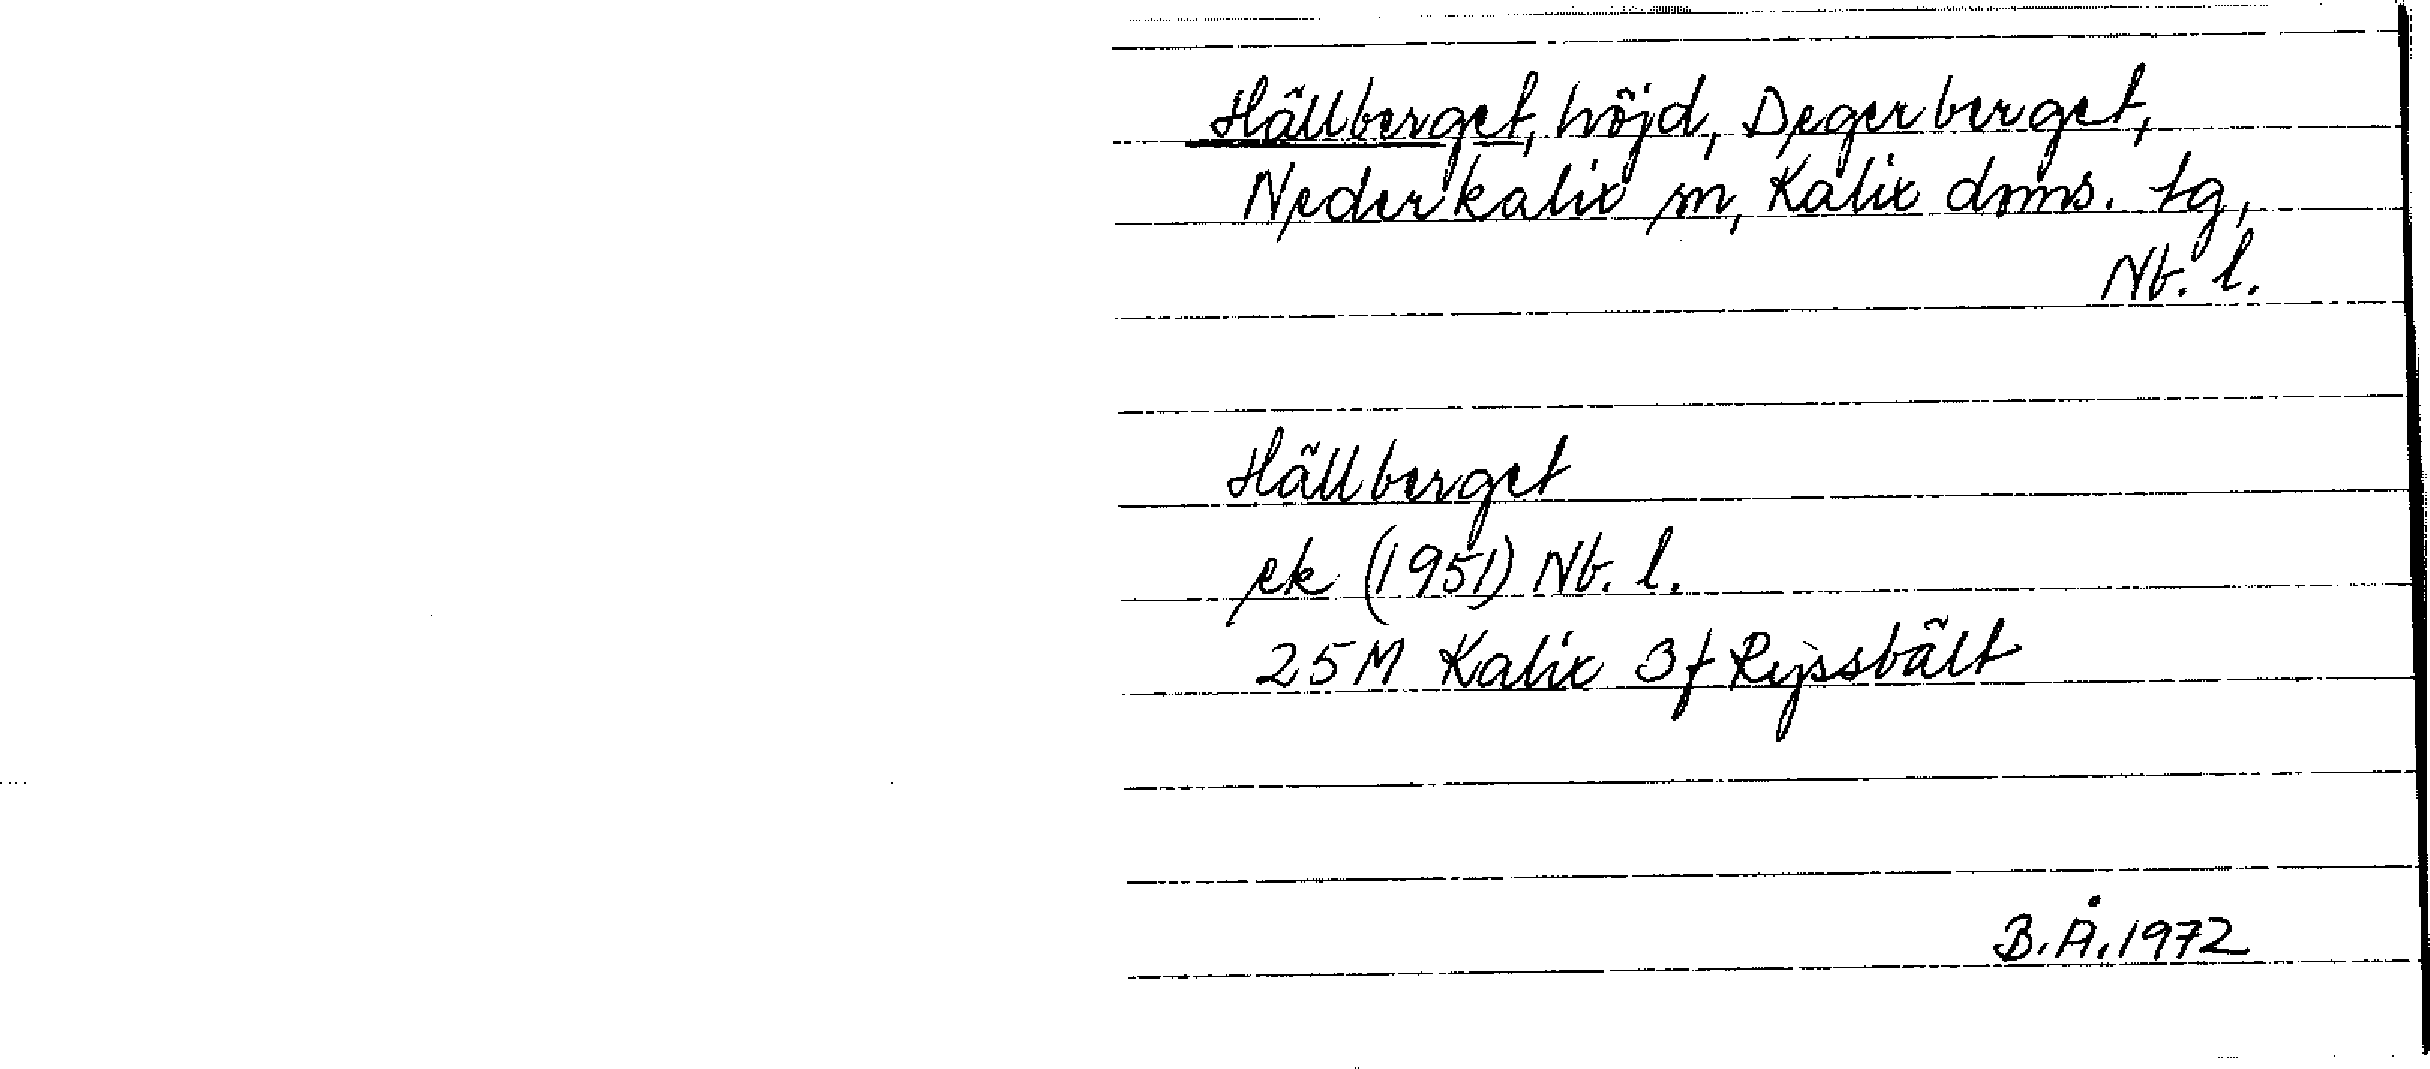 Hällberget, höjd, Degerberget,
Nederkalix sn, Kalix doms. tg,
Nb. l.
Hällberget
ek (1951) Nb. l.
25M Kalix 3f Ryssbält
B.Å. 1972